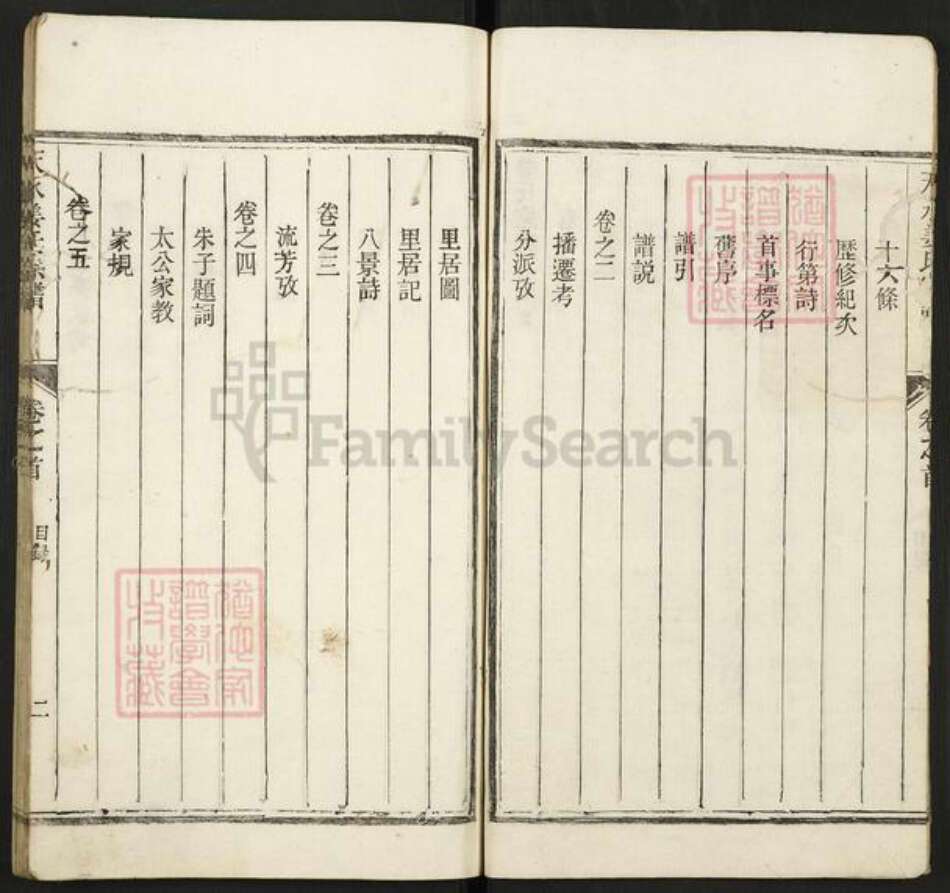 十六條
歷修紀次
行第詩
首事標名
舊序
譜引
譜説
卷之二
播遷考
分派攷
里居圖
里居記
八景詩
卷之三
流芳攷
卷之四
朱子題詞
太公家教
家規
卷之五
卷之首
目錄
二
FamilySearch